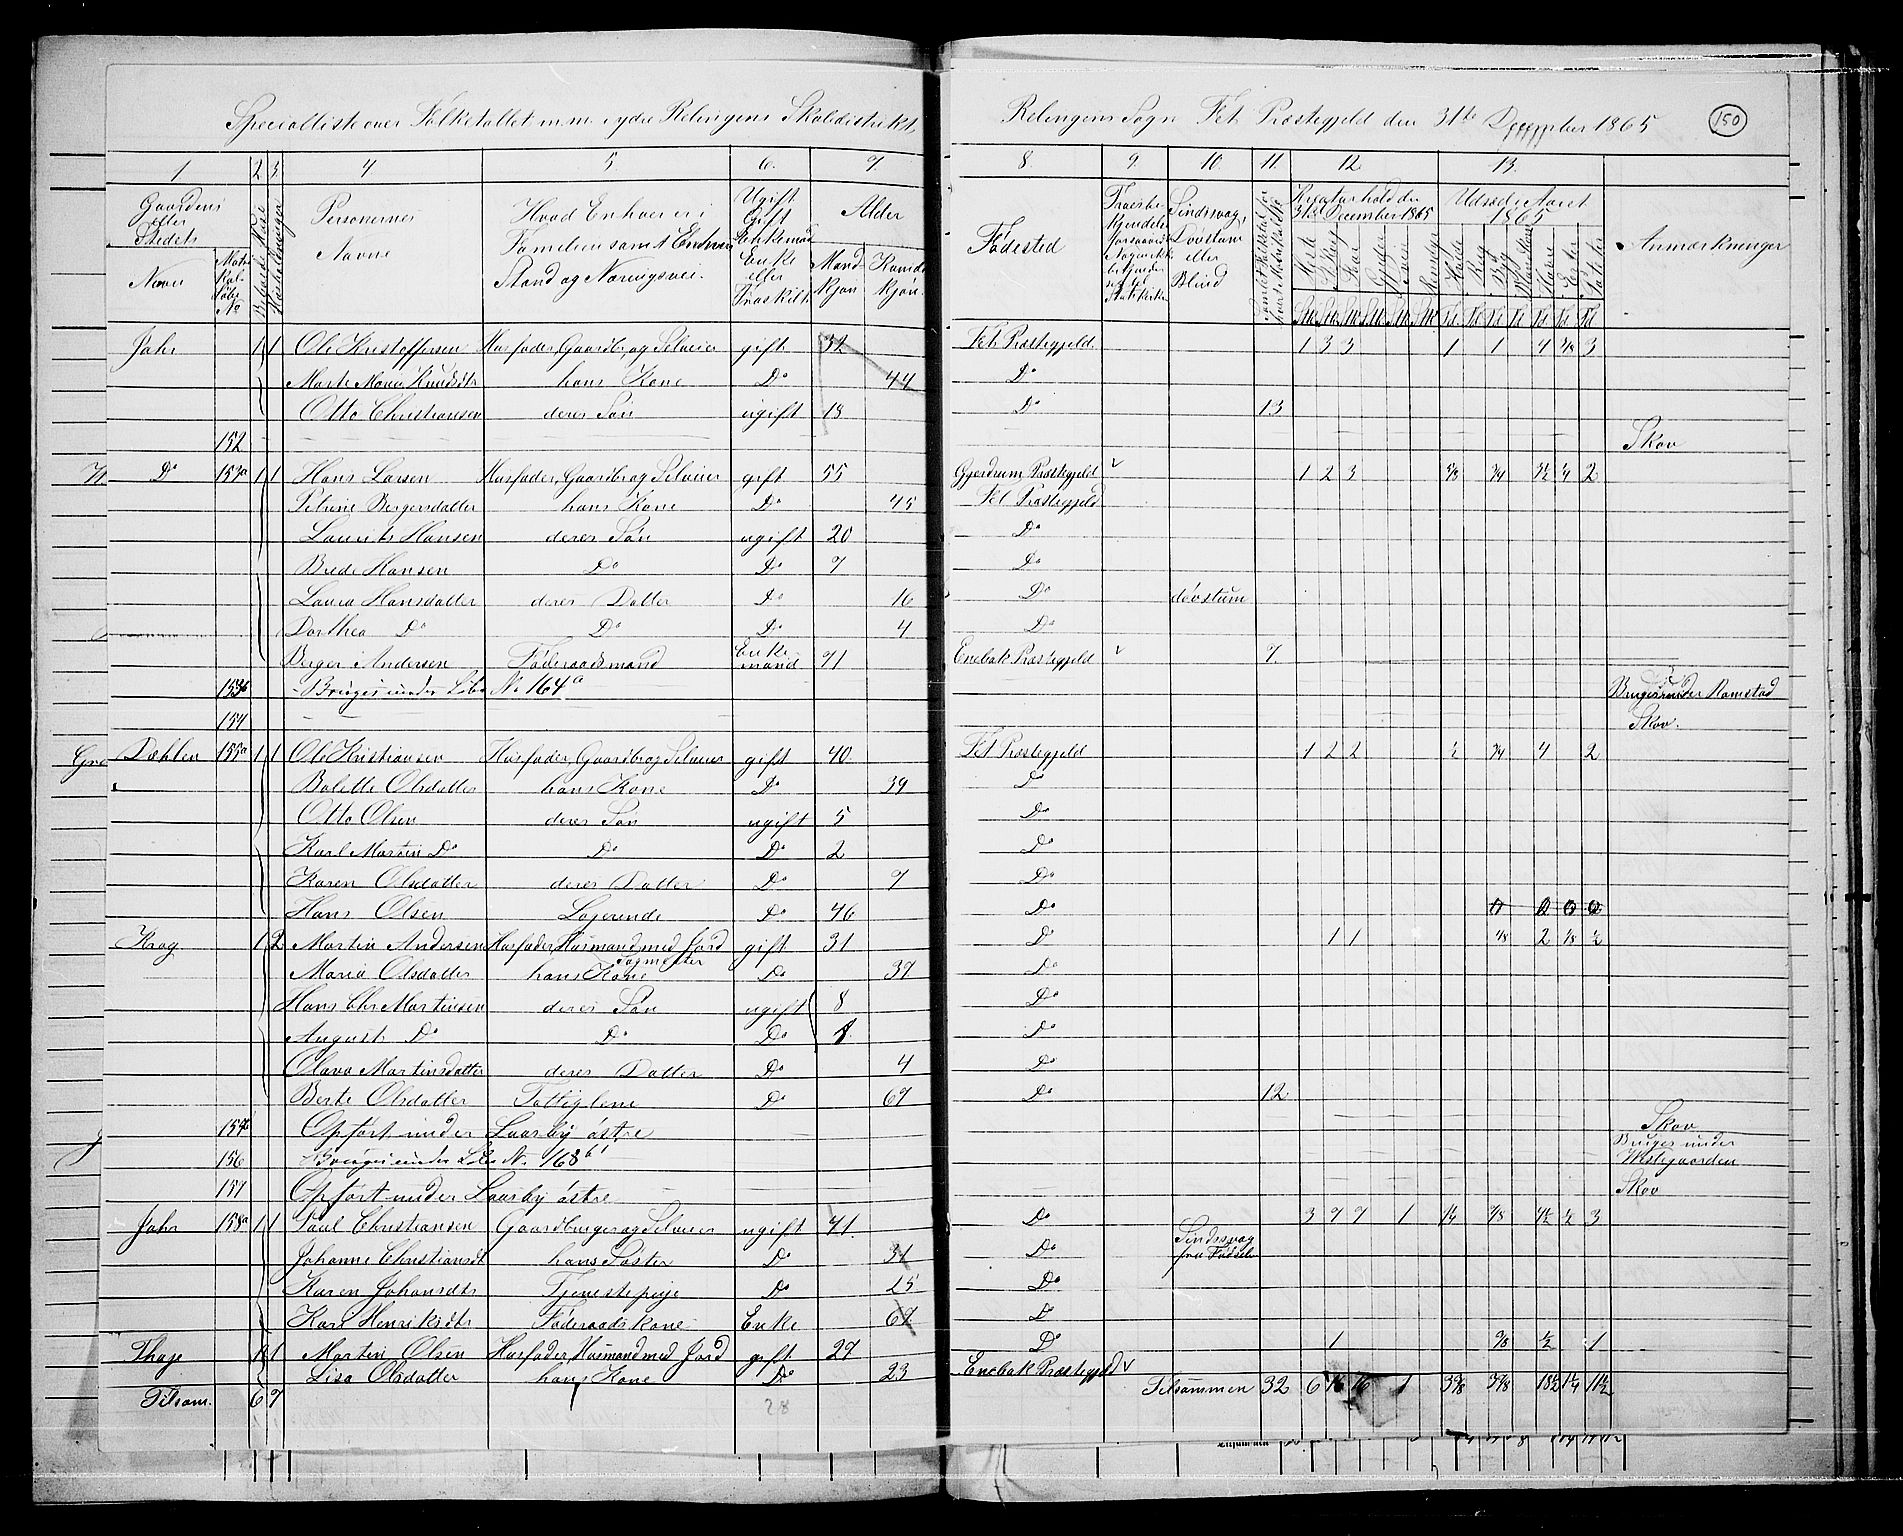 Specialliste over Folketallet m.m. i ydre Relingens Skoledistrikt Relingens Sogn Fet Præstegjeld den 31te December 1865 150
1 2 3 4 5 6. 7. 8 9. 10. 11. 12. 13.
Gaardens eller Stedets Personernes Navne Hvad Enhver er i Familien samt Enhvers Stand og Næringsvei. Ugift Gift Enkemand Enke eller Fraskilt Alder Fødested Sindssvag, Døvstum eller Blind Kreaturhold den 31te December 1865 Udsæd i Aaret 1865 Anmærkninger
Navn Mand kjøn Kvinde kjøn.
Heste Faar Svin Hvede Rug Byg Havre Erter Poteter
Jahr 1 1 Ole Kristoffersen Husfader, Gaardbr. og Selveier gift 32 Fet Præstegjeld. 1 3 3 1 1 4 3/8 3
Marte Marie Knudsdtr hans Kone Do 44 Do
Otto Christiansen deres Søn ugift 18 Do 13
152 Skov
Do 153a 1 1 Hans Larsen Husfader, Gaardbr. og Selveier gift 55 Gjerdrum Præstegjeld 1 2 3 5/8 3/4 3½ ¼ 2
Petrine Bergersdatter hans Kone Do 45 Fet Præstegjeld
Laurits Hansen deres Søn ugift 20 Do
Brede Hansen Do Do 7 Do
Laura Hansdatter deres Datter Do 16 Do døvstum
Dorthea Do Do Do 4 Do
Berger Andersen Føderaadsmand Enkemand 71 Enebak Præstegjeld 7.
153b Bruges under Løbe No 164a Bruges under Ramstad
154 Skov.
Dæhlen 155a 1 1 Ole Kristiansen Husfader, Gaardbr. og Selveier gift 40 Fet Præstegjeld 1 2 2 ½ 3/4 4 2
Bolette Olsdatter hans Kone Do 39 Do
Otto Olsen deres Søn ugift 5 Do
Karl Martin Do Do Do 2 Do
Karen Olsdatter deres Datter Do 7 Do
Hans Olsen Logerende Do 46 Do
Krog 1 2 Martin Andersen Husfader, Husmand med Jord gift 31 Do 1 1 4/8 2 1/8 ½
Maria Olsdatter hans Kone Do 37 Do
Hans Chr Martinsen deres Søn ugift 8 Do
August Do Do Do 1 Do
Olava Martinsdatter deres Datter Do 4 Do
Berte Olsdatter Fattiglem Do 67 Do 12
155b Opført under Laasby østre Skov
156 Bruges under Løbe No 168b1 Bruges under Westgaarden
157 Opført under Laasby østre Skov
Jahr 158a 1 1 Paul Christiansen Gaardbruger og Selveier ugift 41. Do 3 7 7 1 1¼ 7/8 4½ ½ 3
Johanne Christiansdt hans Søster Do 31 Do Sindssvag fra Fødsel
Karen Johansdtr Tjenestepige Do 25 Do
Kari Henriksdtr Føderaadskone Enke 67 Do
Thage 1 1 Martin Olsen Husfader, Husmand med Jord gift 27 Do 1 ½ 1
Lisa Olsdatter hans Kone Do 23 Enebak Præstegjeld
Tilsam. 6 7 28 Tilsammen 32 6 16 16 1 18½ 1¼ 11½